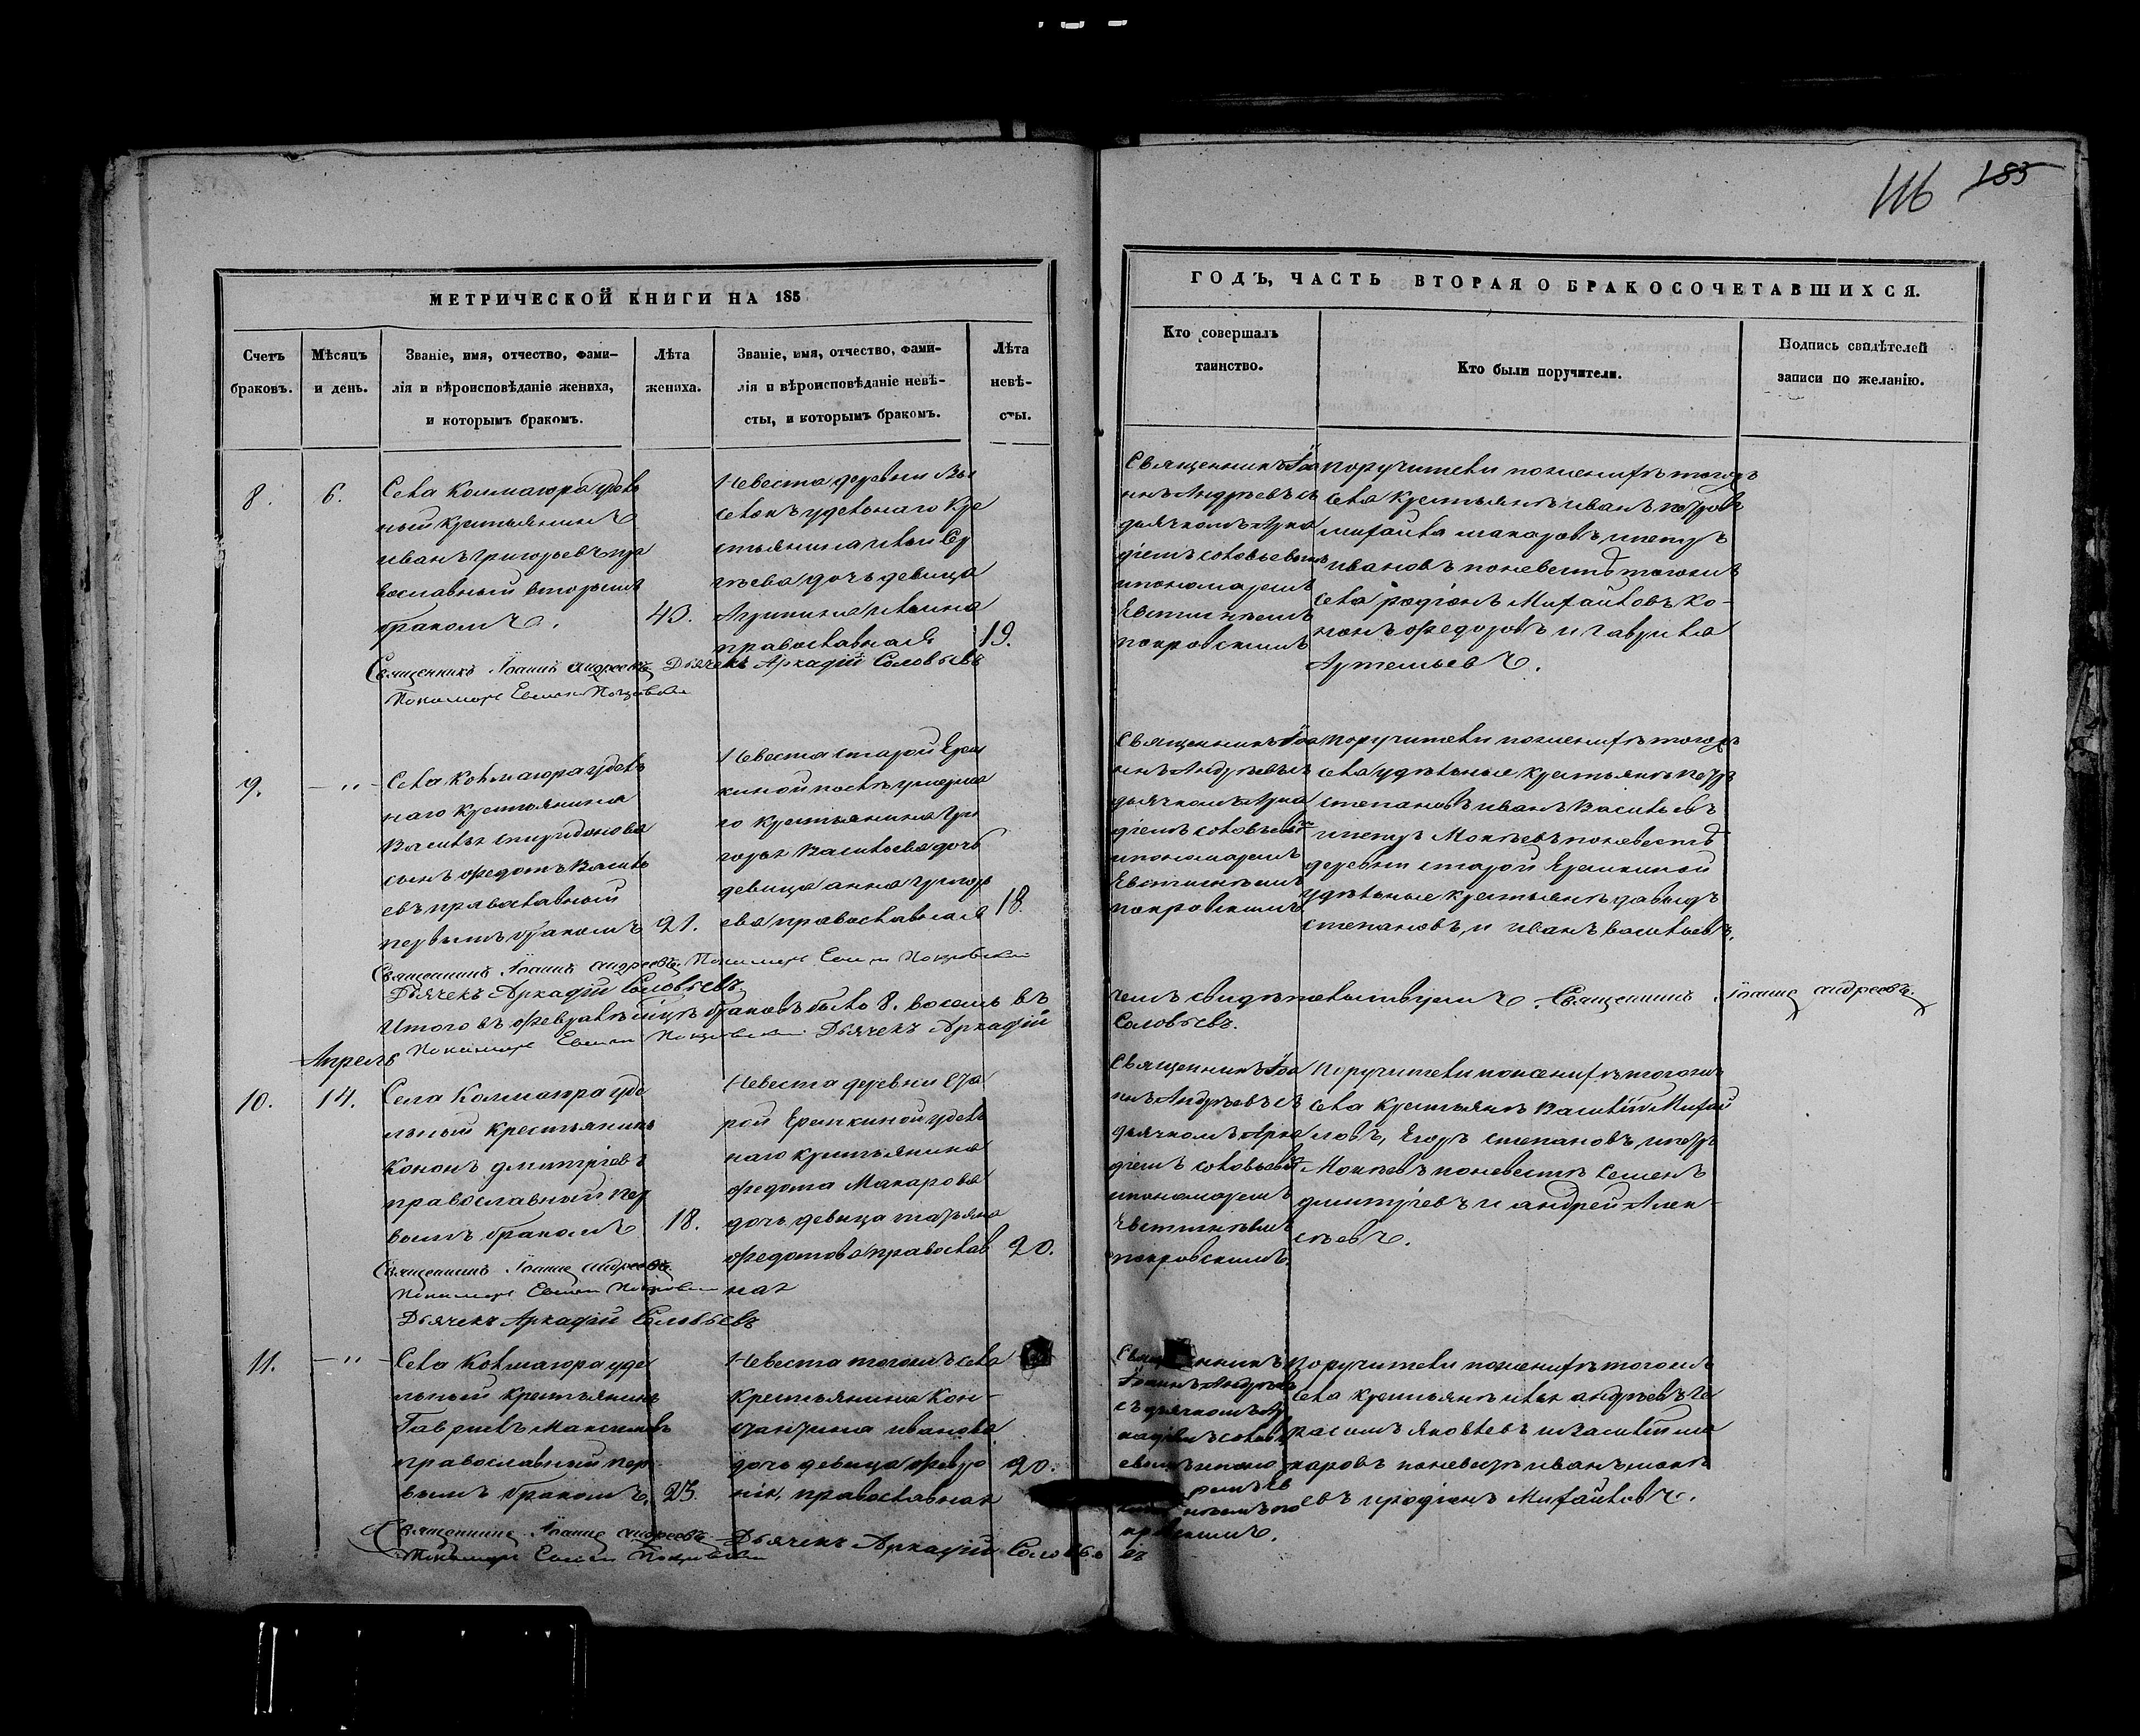 116 185
МЕТРИЧЕСКОЙ КНИГИ НА 185
ГОДЪ, ЧАСТЬ ВТОРАЯ О БРАКОСОЧЕТАВШИХСЯ.
Счетъ браковъ.
Мѣсяцъ и день.
Званіе, имя, отчество, фами-
лія и вѣроисповѣданіе жениха,
и которымъ бракомъ.
Лѣта жениха.
Званіе, имя, отчество, фами-
лія и вѣроисповѣданіе невѣ-
сты, и которымъ бракомъ.
Лѣта невѣ-
сты.
Кто совершалъ
таинство.
Кто были поручители.
Подпись свидѣтелей
записи по желанію.
8. 6.
Села Колмаюра удель
ный крестьянинъ
иванъ григорьевъ пра
вославный вторымъ
бракомъ. 43.
Невеста деревни Вы
селокъ удельнаго Кре
стьянина
дочь девица
Агрипина
православная 19.
Священникъ Іоа
нъ Андреевъ съ
дьячкомъ Арка
діемъ соловьевымъ
и пономаремъ
Евстигнѣемъ
покровскимъ
поручители по женихѣ тогожъ
села крестьянѣ иванъ петровъ
михайла макаровъ и петръ
ивановъ по невестѣ тогожъ
села родіонъ Михайловъ Ко-
нонъ федоровъ и гаврила
Артемьевъ.
Священникъ Іоаннъ Андреевъ Дьячекъ Аркадій Соловьевъ
Пономарь Покровскій
9. — " —
Села Колмаюра удель
наго крестьянина
Василья спиридонова
сынъ федотъ Василь
евъ православный
первымъ бракомъ 21.
Невеста старой Ерем
киной удельна
го крестьянина Гри
горья Васильева дочь
девица анна григорь
ева православная 18.
Священникъ Іоа
нъ Андреевъ съ
дьячкомъ Арка
діемъ соловьевымъ
и пономаремъ
Евстигнѣемъ
покровскимъ
поручители по женихѣ тогожъ
села удѣльные крестьянѣ петръ
степановъ иванъ Васильевъ
и петръ Мокѣевъ по невестѣ
деревни старой Еремкиной
удѣльные крестьянѣ давыдъ
степановъ, и иванъ васильевъ.
Священникъ Іоаннъ Андреевъ. Пономарь Покровскій
Дьячекъ Аркадій Соловьевъ
Итого въ февралѣ м-цѣ браковъ было 8. восемь въ
чемъ свидѣтельствуемъ. Священникъ Іоаннъ Андреевъ.
Пономарь Покровскій Дьячекъ Аркадій
Соловьевъ.
Апрель
10. 14.
Села Колмаюра уде
льный крестьянинъ
Кононъ дмитріевъ
православный пер
вымъ бракомъ 18.
Невеста деревни Ста
рой Еремкиной удель
наго крестьянина
федота Макарова
дочь девица татьяна
федотова православ
ная 20.
Священникъ Іоа
нъ Андреевъ съ
дьячкомъ Арка
діемъ соловьевымъ
и пономаремъ
Евстигнѣемъ
покровскимъ.
Поручители по женихѣ тогожъ
села крестьянѣ Василій Михай
ловъ, Егоръ степановъ, и петръ
Мокѣевъ по невестѣ Семенъ
дмитріевъ и андрей Алек-
сѣевъ.
Священникъ Іоаннъ Андреевъ.
Пономарь Покровскій
Дьячекъ Аркадій Соловьевъ
11. — " —
Села Колмаюра уде
льный крестьянинъ
Гаврилъ Максимовъ
православный пер
вымъ бракомъ. 25.
Невеста тогожъ села
крестьянина Кон-
стантина иванова
дочь девица февро
нія, православная 20.
Священникъ
Іоаннъ Андреевъ
съ дьячкомъ Ар
кадіемъ соловь
евымъ и поно
маремъ Ев
по
кровскимъ.
Поручители по женихѣ тогожъ
села крестьянѣ андрѣевъ Ге
расимъ яковлевъ и Василій ма
каровъ по невестѣ иванъ мокѣ
евъ и родіонъ Михайловъ.
Священникъ Іоаннъ Андреевъ Дьячекъ Аркадій Соловьевъ
Пономарь Покровскій